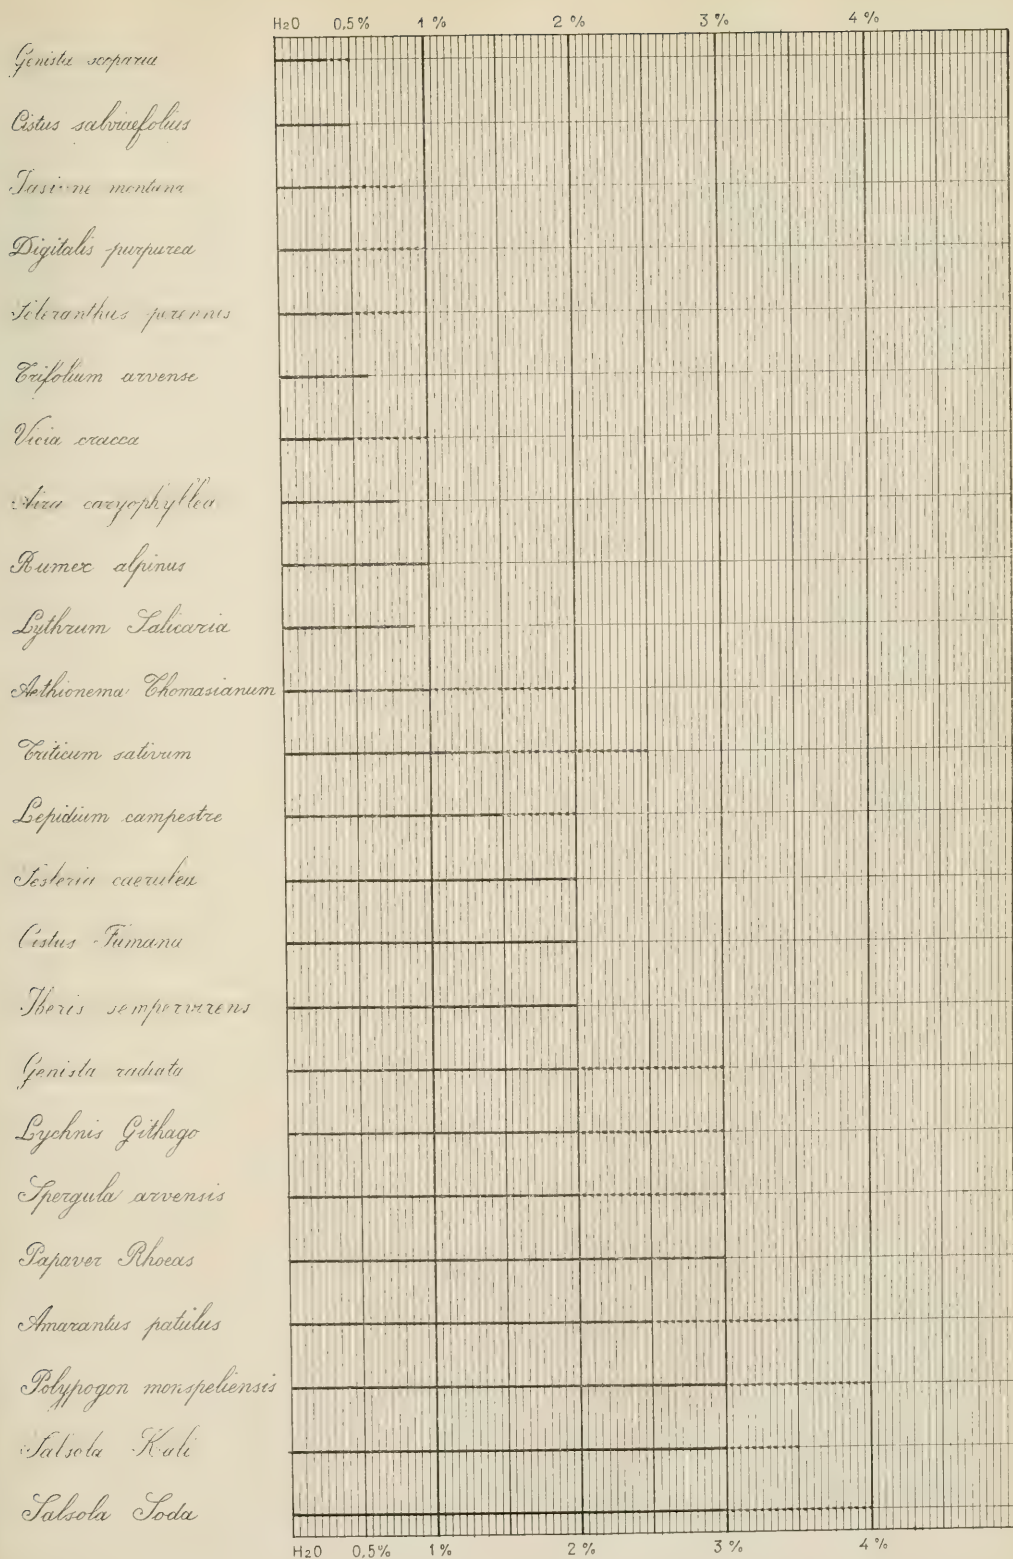 H2O 0,5% 1% 2% 3% 4%
Genista scoparia
Cistus salviaefolius
Jasione montana
Digitalis purpurea
Scleranthus perennis
Trifolium arvense
Vicia cracca
Aira caryophyllea
Rumex alpinus
Lythrum Salicaria
Aethionema Thomasianum
Triticum sativum
Lepidium campestre
Sesleria caerulea
Cistus Fumana
Iberis sempervirens
Genista radiata
Lychnis Githago
Spergula arvensis
Papaver Rhoeas
Amarantus patulus
Polypogon monspeliensis
Salsola Kali
Salsola Soda
H2O 0,5% 1% 2% 3% 4%